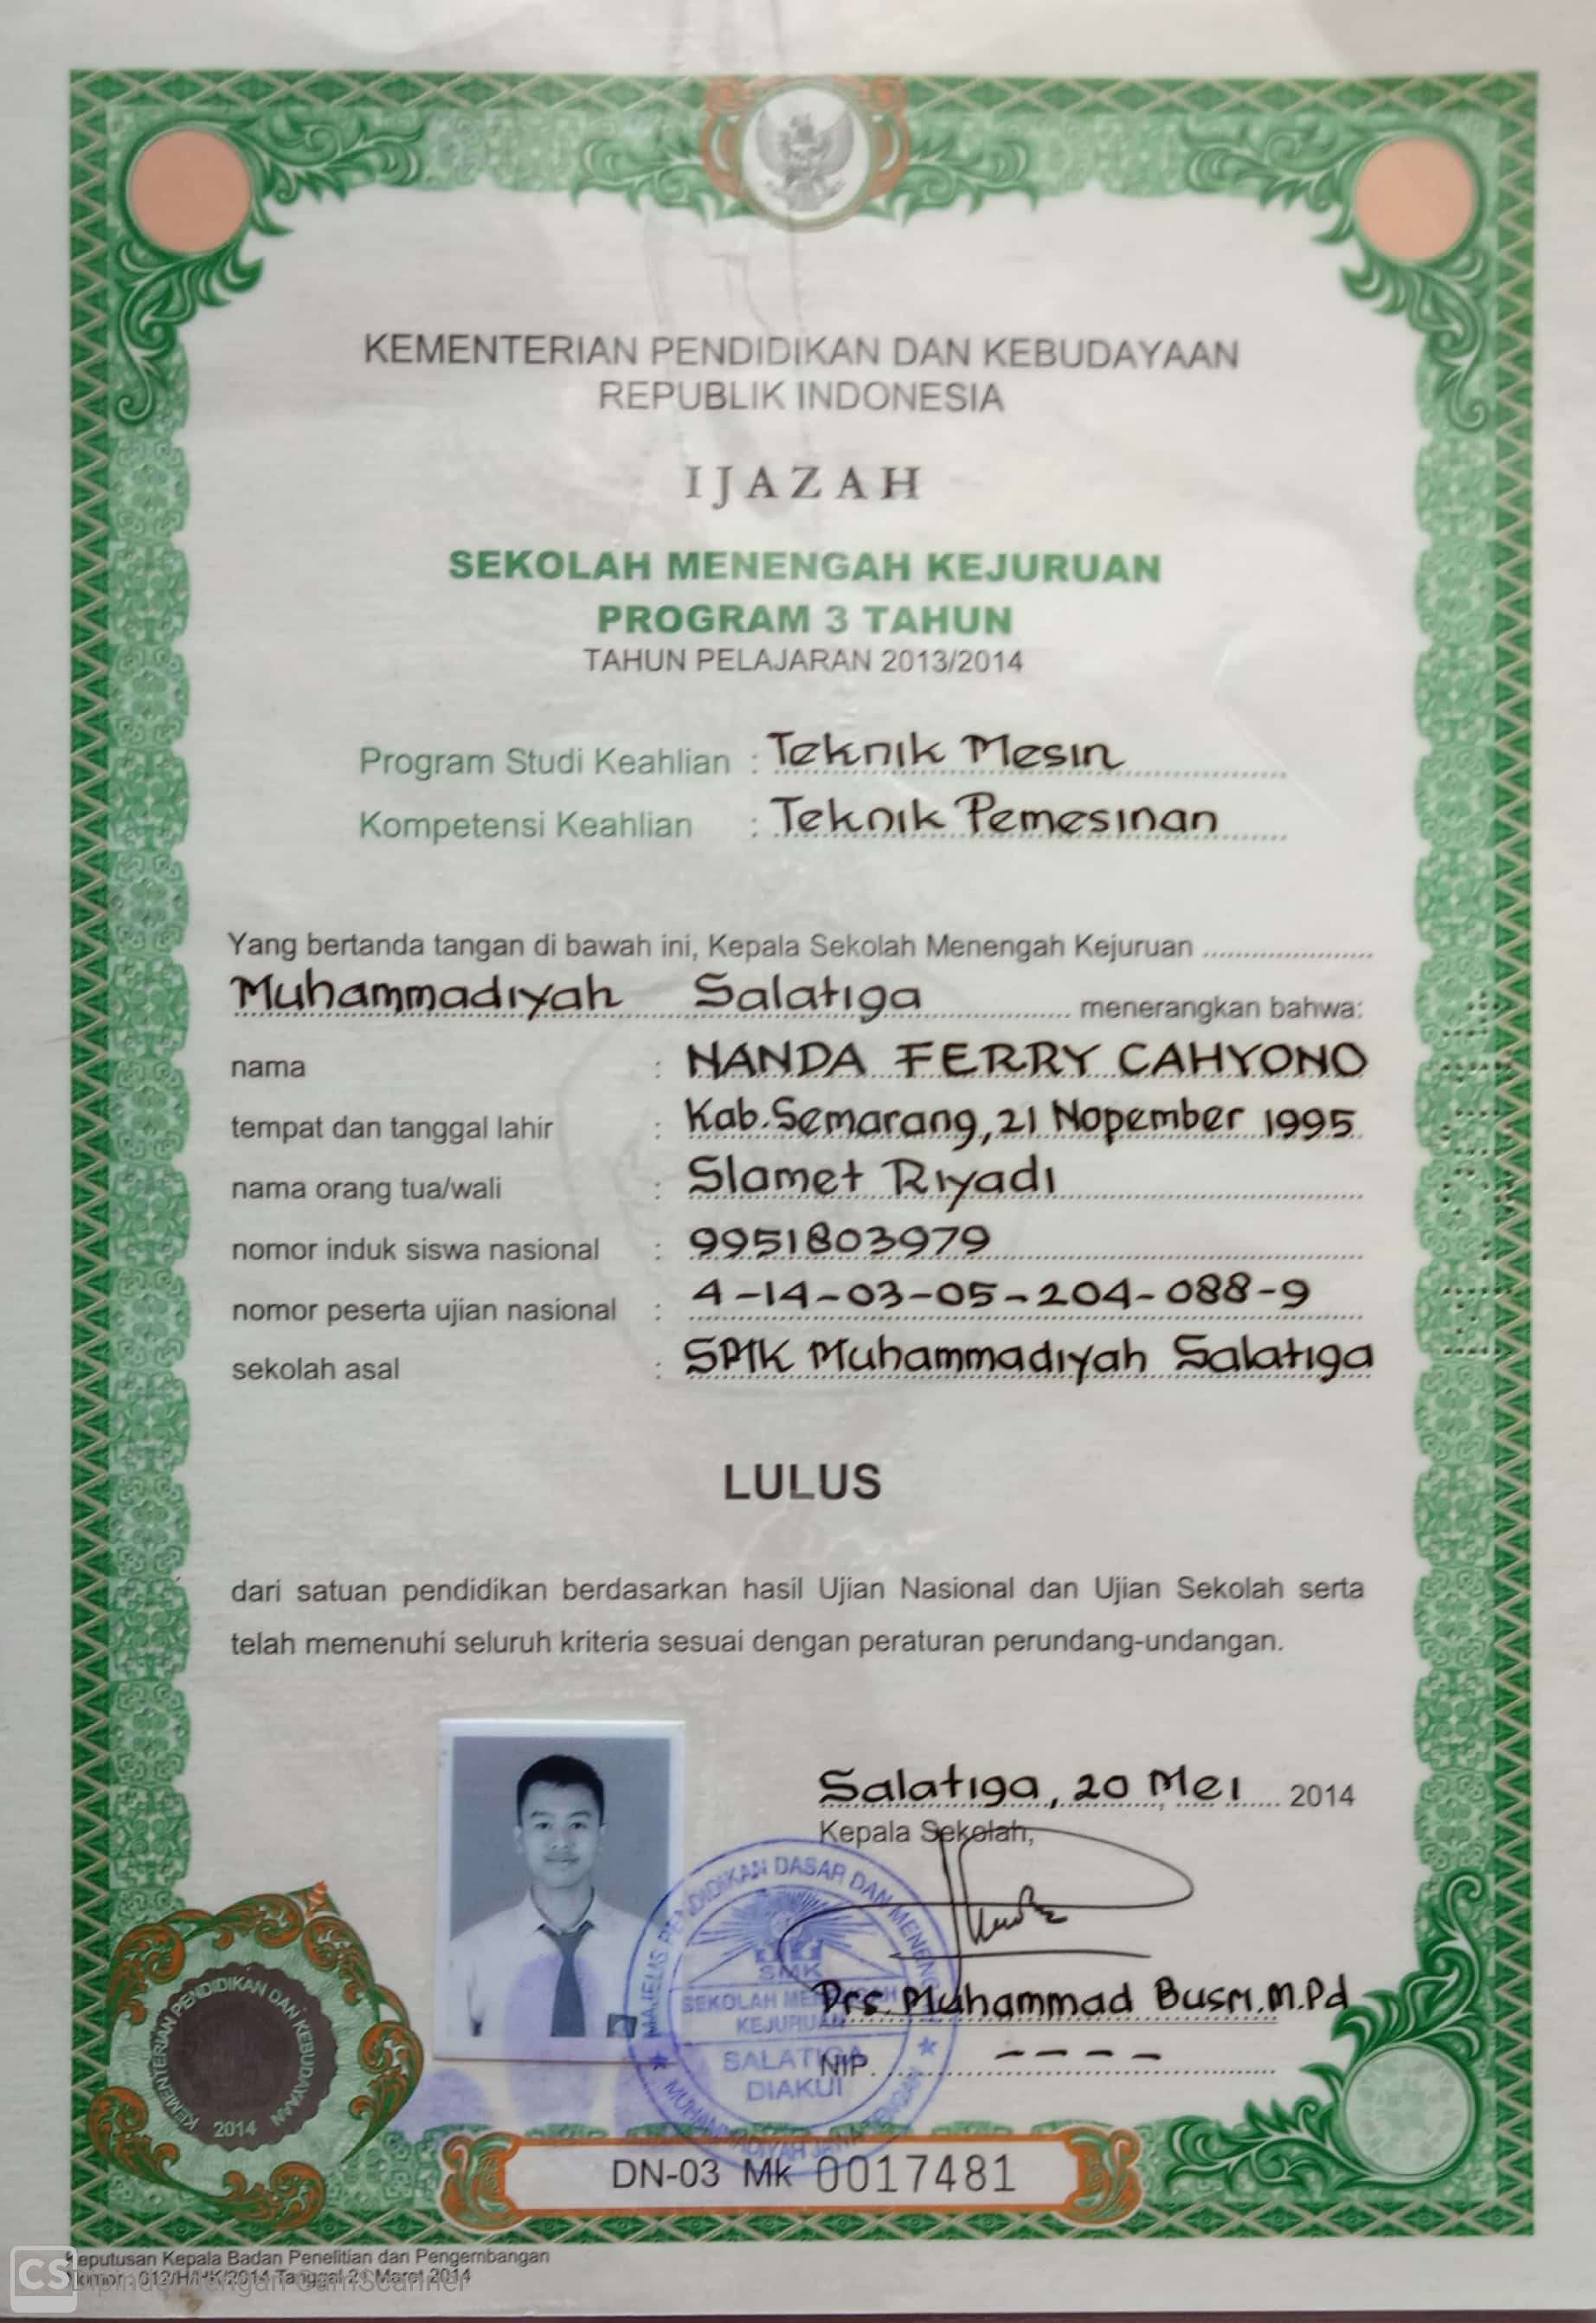 KEMENTERIAN PENDIDIKAN DAN KEBUDAYAAN
REPUBLIK INDONESIA
IJAZAH
SEKOLAH MENENGAH KEJURUAN
PROGRAM 3 TAHUN
TAHUN PELAJARAN 2013/2014
Program Studi Keahlian : Teknik Mesin
Kompetensi Keahlian : Teknik Pemesinan
Yang bertanda tangan di bawah ini, Kepala Sekolah Menengah Kejuruan
Muhammadiyah Salatiga menerangkan bahwa:
nama : NANDA FERRY CAHYONO
tempat dan tanggal lahir : Kab. Semarang, 21 Nopember 1995
nama orang tua/wali : Slamet Riyadi
nomor induk siswa nasional : 9951803979
nomor peserta ujian nasional : 4-14-03-05-204-088-9
sekolah asal : SMK Muhammadiyah Salatiga
LULUS
dari satuan pendidikan berdasarkan hasil Ujian Nasional dan Ujian Sekolah serta
telah memenuhi seluruh kriteria sesuai dengan peraturan perundang-undangan.
Salatiga, 20 Mei 2014
Kepala Sekolah,
MAJELIS PENDIDIKAN DASAR DAN
SMK
SEKOLAH
KEJURUAN
SALATIGA
DIAKUI
Drs. Muhammad Busri, M.Pd
NIP. ----
KEMENTERIAN PENDIDIKAN DAN KEBUDAYAAN
2014
DN-03 Mk 0017481
Keputusan Kepala Badan Penelitian dan Pengembangan
Nomor : 012/H/HK/2014 Tanggal 21 Maret 2014
CS Dipindai dengan CamScanner